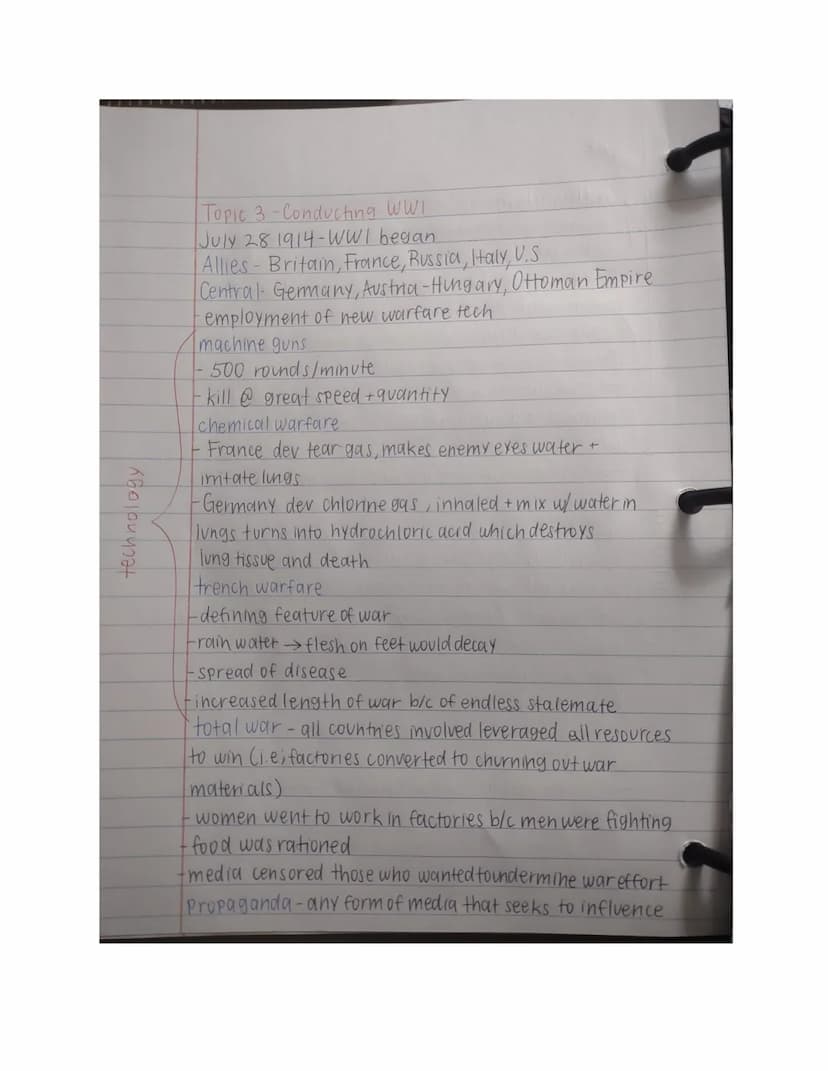 Topic 3 - Conducting WW1
July 28 1914 - WW1 began
Allies - Britain, France, Russia, Italy, U.S
Central - Germany, Austria-Hungary, Ottoman Empire
- employment of new warfare tech
machine guns
- 500 rounds/minute
- kill @ great speed + quantity
chemical warfare
- France dev tear gas, makes enemy eyes water +
irritate lungs
- Germany dev chlorine gas, inhaled + mix w/ water in
lungs turns into hydrochloric acid which destroys
lung tissue and death
trench warfare
- defining feature of war
- rain water → flesh on feet would decay
- spread of disease
- increased length of war b/c of endless stalemate
technology
total war - all countries involved leveraged all resources
to win (i.e; factories converted to churning out war
materials)
- women went to work in factories b/c men were fighting
- food was rationed
- media censored those who wanted to undermine war effort
propaganda - any form of media that seeks to influence